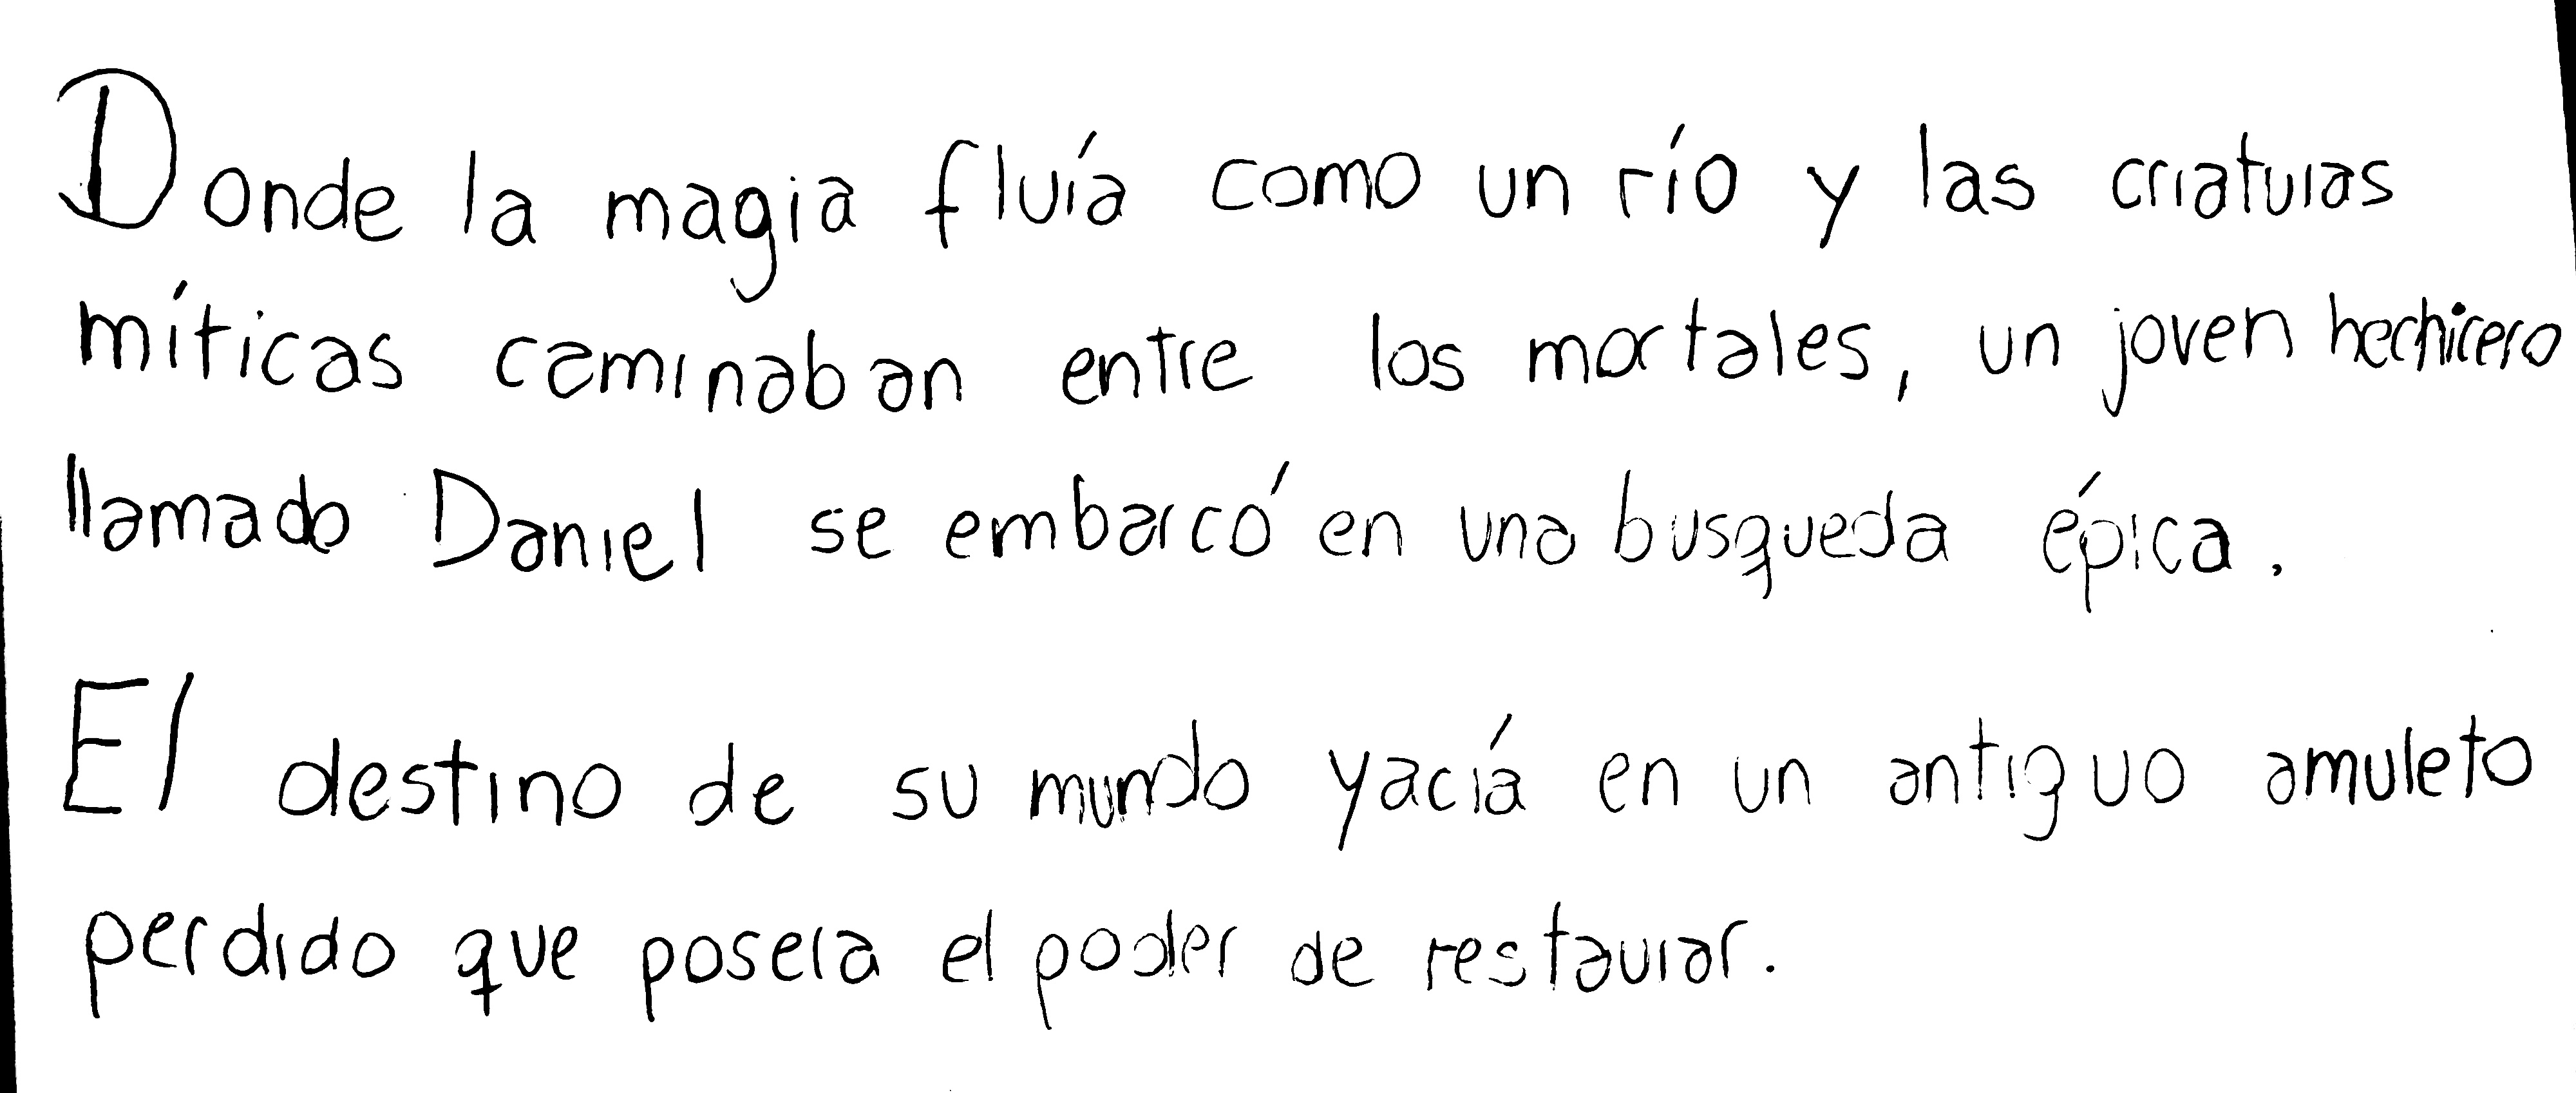 Donde la magia fluía como un río y las criaturas
míticas caminaban entre los mortales, un joven hechicero
llamado Daniel se embarcó en una busqueda épica.
El destino de su mundo yacía en un antiguo amuleto
perdido que poseia el poder de restaurar.